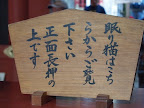 眠り猫はこち
らからご覧
下さい
正面長押の
上です